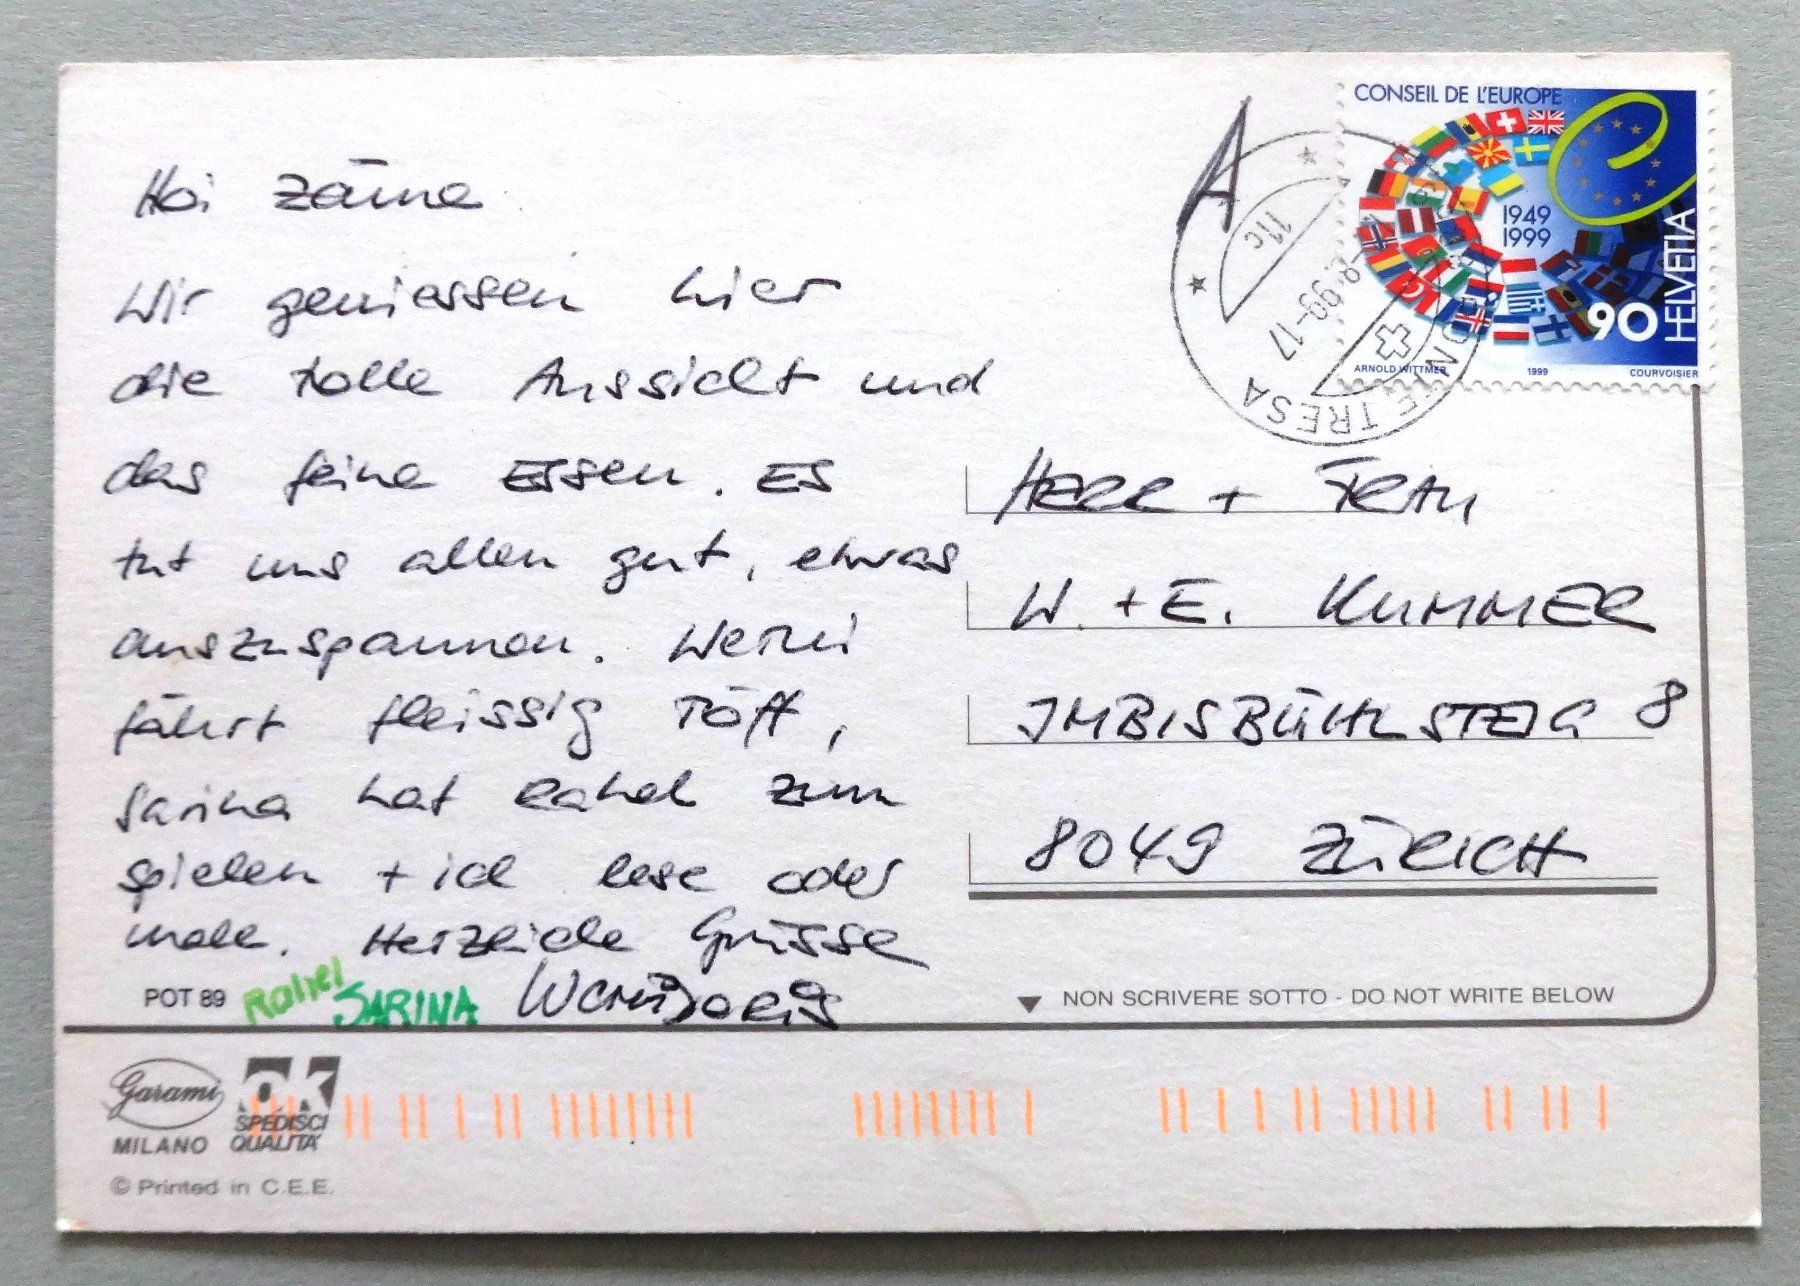 Hoi zäme
Wir geniessen hier
die tolle Aussicht und
das feine Essen. Es
tut uns allen gut, etwas
auszuspannen. Werni
fährt fleissig Töff,
Sarina hat Rahel zum
spielen + ich lese oder
male. Herzliche Grüsse
Rahel SARINA Werni Doris
POT 89
A
CONSEIL DE L'EUROPE
1949
1999
HELVETIA
90
ARNOLD WITTMER 1999 COURVOISIER
11c
.8.99-17
PONTE TRESA
HERR + FRAU
W. + E. KUMMER
IMBISBÜHLSTEIG 8
8049 ZÜRICH
NON SCRIVERE SOTTO - DO NOT WRITE BELOW
Garami
MILANO
OK
SPEDISCI
QUALITÀ
© Printed in C.E.E.